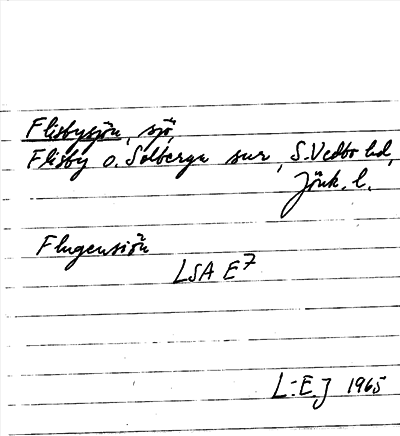 Flisbysjön, sjö,
Flisby o. Solberga snr, S. Vedbo hd,
Jönk. l.
Flugensiön
LSA E7
L:E.J 1965